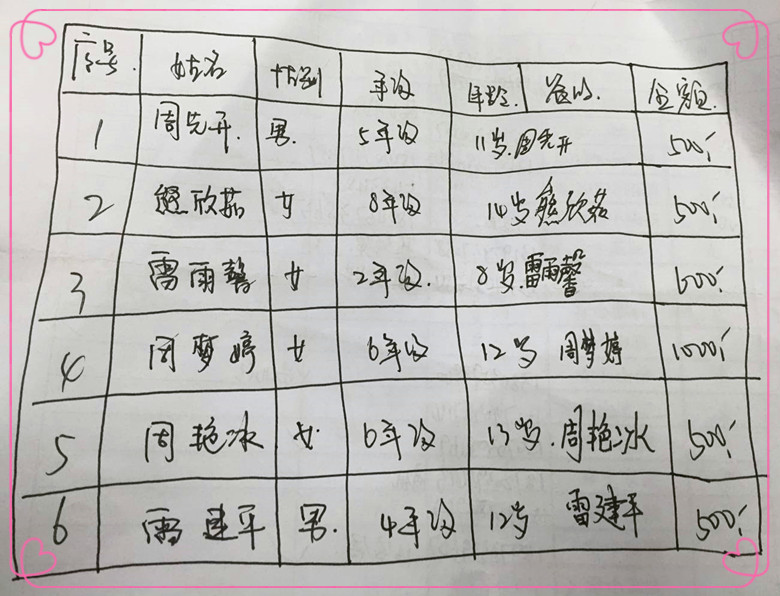 序号 姓名 性别 年级 年龄 签收 金额
1 周先开 男 5年级 11岁 周先开 500/
2 熊欣茹 女 8年级 14岁 熊欣茹 500/
3 雷雨馨 女 2年级 8岁 雷雨馨 600/
4 周梦婷 女 6年级 12岁 周梦婷 1000/
5 周艳冰 女 6年级 13岁 周艳冰 500/
6 雷建平 男 4年级 12岁 雷建平 500/